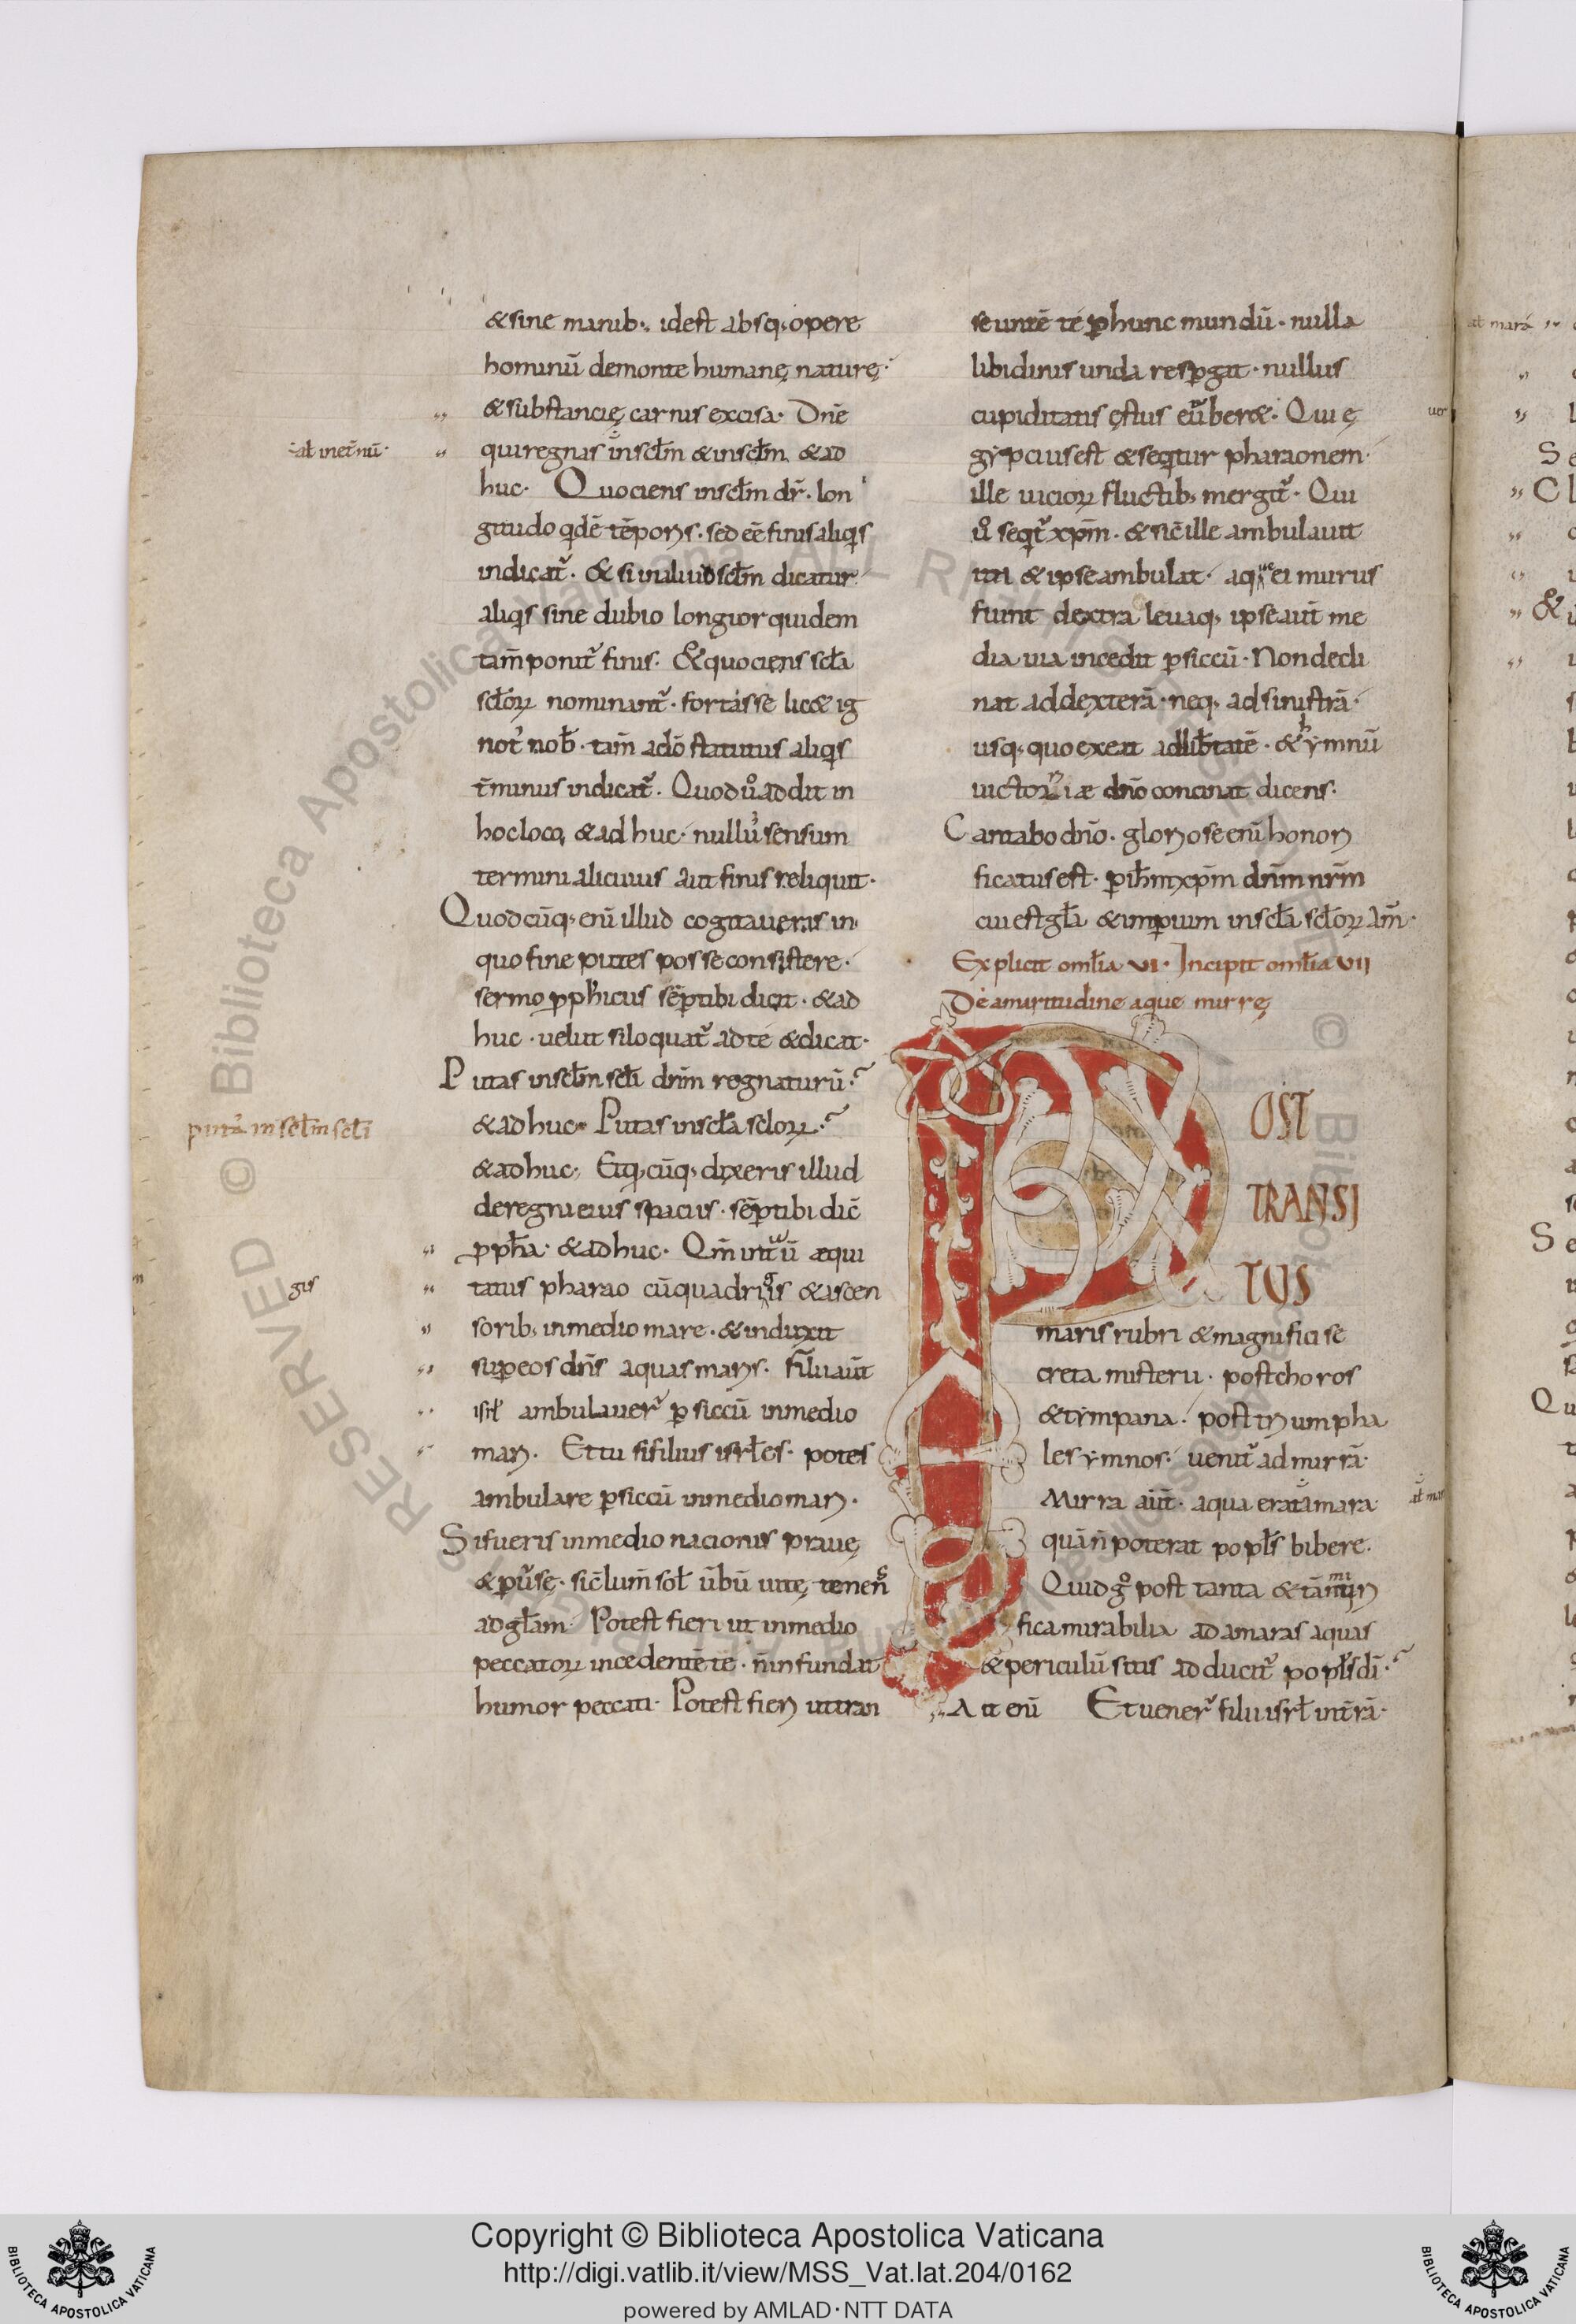 & sine manib; idest absq; opere
hominū demonte humanę naturę·
& substancię carnis excisa· Dnē
qui regnas in scłm & inscłm & ad
·at inet̄nū·
huc· Quociens inscłm dr̄· lon
gitudo qdē tēporis· sed eē finis aliqs
indicat᷑· & si inaliud scłm dicatur
aliqs sine dubio longior quidem
tam̄ ponit᷑ finis· & quociens scła
scłoꝝ nominant᷑· fortasse lic& ig
not' nob̄· tam̄ adō statutus aliqs
t̄minus indicat᷑· Quod ů addit in
hoc loco, & ad huc· nullū sensum
termini alicuius aut finis reliquit·
Quodcūq; enī illud cogitaueris in
quo fine putes posse consistere·
sermo ꝓph̄icus sēp tibi dicit· & ad
huc· uelut si loquat᷑ ad te & dicat·
Putas inscłm scłi dnm̄ regnaturū·?
& ad huc· Putas inscła scloꝝ·?
putas in scłm scłi
& ad huc· Etqcūq; dixeris illud
deregni eius spaciis· sēp tibi dic̄
ꝓph̄a· & ad huc· Qm̄ int᷑ū æqui
tatus pharao cū quadrigis & ascen
gis
sorib; inmedio mare· & induxit
sup eos dn̄s aquas maris· filii aūt
isrł ambulauer᷑ ꝑ siccū inmedio
mari· Et tu si filius isrłes· potes
ambulare ꝑ siccū inmedio mari·
Si fueris inmedio nacionis prauę
& puse· sic̄ lum̄ soł ūbū uitę tenens
ad głam· Potest fieri ut inmedio
peccatoꝝ incedentē te· n̄ infundat
humor peccati· Potest fieri ut tran
seuntē te ꝑ hunc mundū· nulla
libidinis unda respgat· nullus
cupiditatis ęstus euber&· Qui ę
uer
gypcius est & seqitur pharaonem·
ille uicioꝝ fluctib; mergit᷑· Qui
ů seqt᷑ xp̄m· & sic̄ ille ambulauit
ita & ipse ambulat· aque ei murus
fiunt dextra leuaq; ipse aūt me
dia uia incedit ꝑ siccū· Non decli
nat addexterā· neq; ad sinistrā·
usq; quo exeat ad lib̄tatē· & hymnū
uictoriæ dn̄o concinat dicens·
Cantabo dn̄o· gloriose enī honori
ficatus est· ꝑ ih̄m xp̄m dn̄m nr̄m
cui est gła & imꝑium inscła scłoꝝ am̄·
Explicit omłia VI· Incipit omłia VII
De amiritudine aque mirrę
POST
TRANSI
TUS
maris rubri & magnifici se
creta misterii· post choros
& tympana· post triumpha
les ymnos· uenit᷑ ad mirrā·
Mirra aūt· aqua erat amara
quā n̄ poterat popłs bibere·
Quid gͦ post tanta & tā miri
fica mirabilia ad amaras aquas
& periculū sitis adducit᷑ popłs dī·?
Ait enī Et uener᷑ filii isrł in t̄rā·
Copyright © Biblioteca Apostolica Vaticana
http://digi.vatlib.it/view/MSS_Vat.lat.204/0162
powered by AMLAD·NTT DATA
BIBLIOTECA APOSTOLICA VATICANA
BIBLIOTECA APOSTOLICA VATICANA